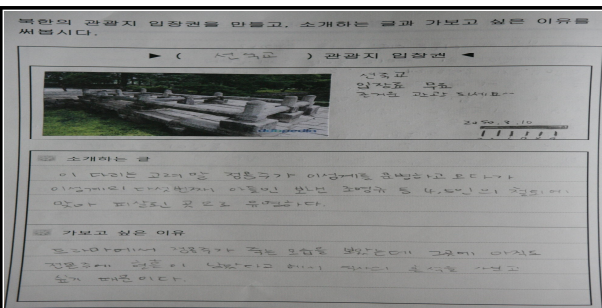 북한의 관광지 입장권을 만들고, 소개하는 글과 가보고 싶은 이유를
써봅시다.
▶ ( 선죽교 ) 관광지 입장권 ◀
선죽교
입장료 무료
즐거운 관광 되세요~
2050.3.10
소개하는 글
이 다리는 고려말 정몽주가 이성계를 문병하고 오다가
이성계의 다섯번째 아들인 보낸 조영규 등 4,5인의 철퇴에
맞아 피살된 곳으로 유명하다.
가보고 싶은 이유
드라마에서 정몽주가 죽는 모습을 보았는데 그곳에 아직도
정몽주에 혈흔이 남았다고 해서 역사의 흔적을 가보고
싶기 때문이다.